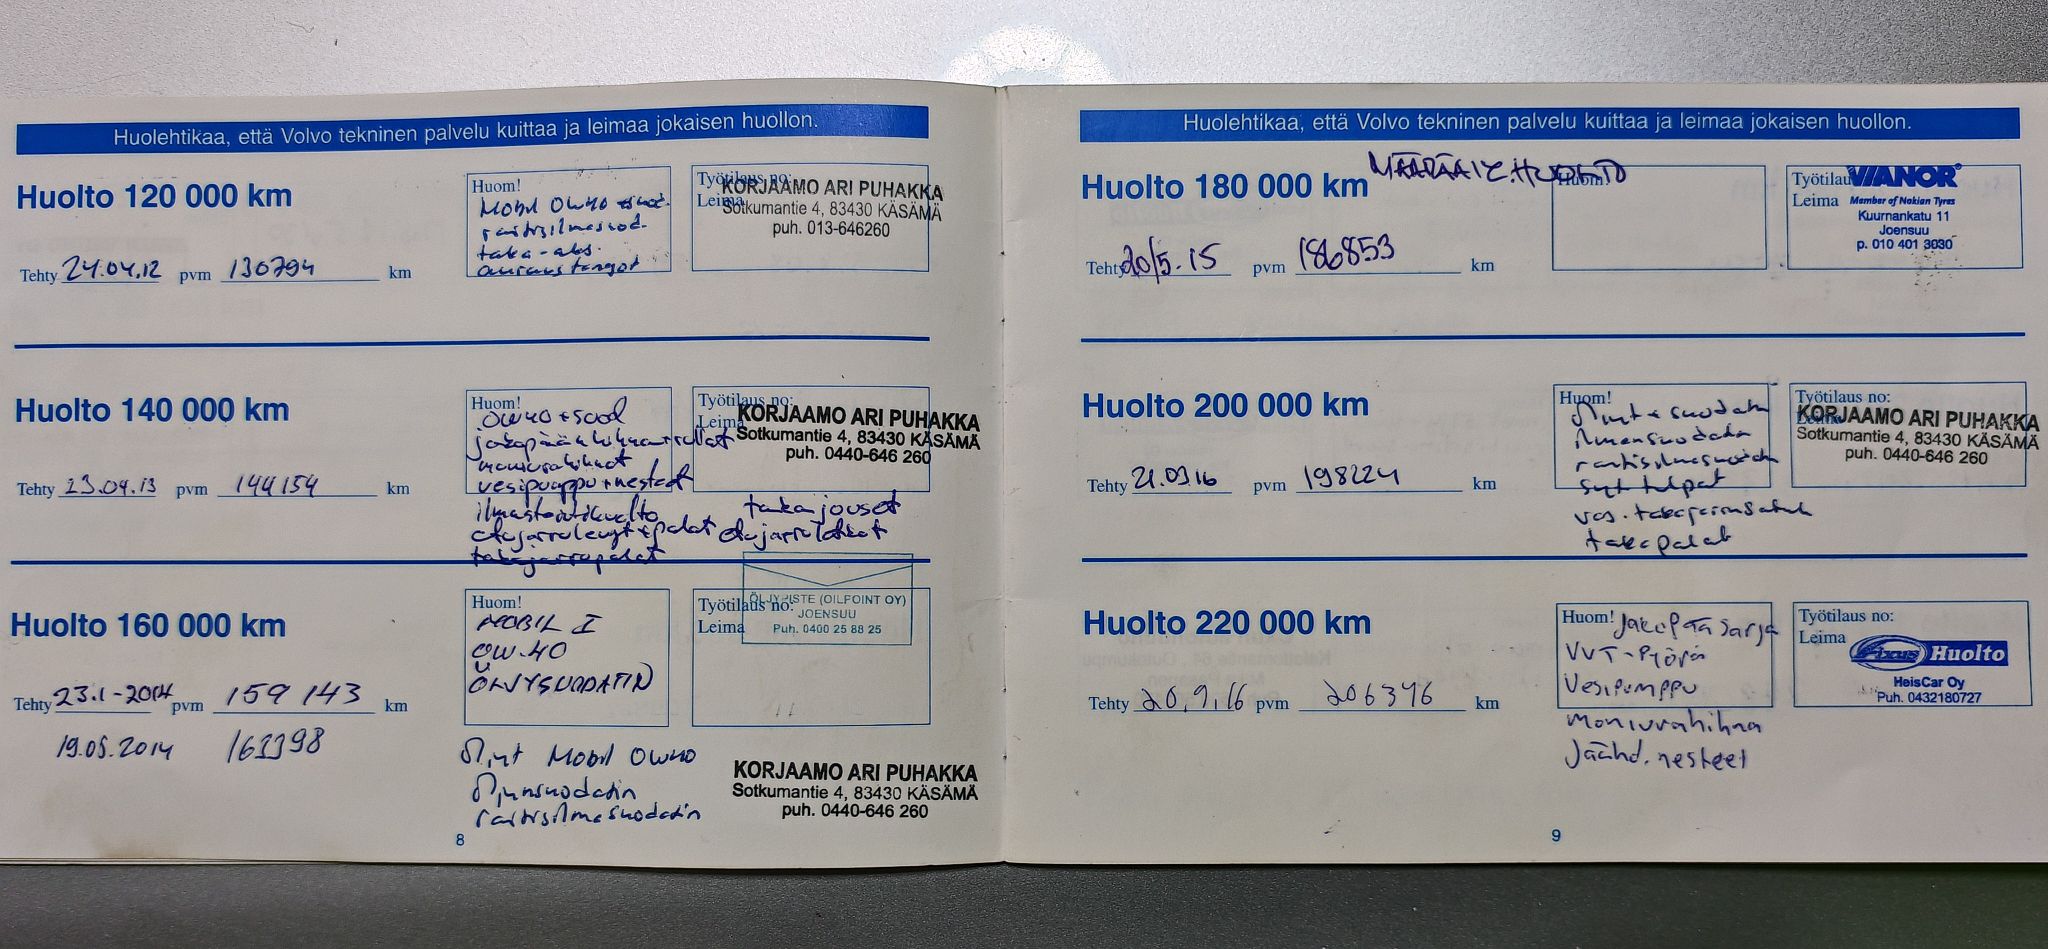 Huolehtikaa, että Volvo tekninen palvelu kuittaa ja leimaa jokaisen huollon.
Huolto 120 000 km
Tehty 24.04.12 pvm 130794 km
Huom!
Mobil 0W40 + suod.
raitisilmasuod.
taka-aks.
Työtilaus no:
Leima
KORJAAMO ARI PUHAKKA
Sotkumantie 4, 83430 KÄSÄMÄ
puh. 013-646260
Huolto 140 000 km
Tehty 23.04.13 pvm 144154 km
Huom!
0W40 + suod
jakopään hihna + rullat
moniurahihnat
vesipumppu + nesteet
ilmastointihuolto
etujarrulevyt + palat
takajarrupalat
Työtilaus no:
Leima
KORJAAMO ARI PUHAKKA
Sotkumantie 4, 83430 KÄSÄMÄ
puh. 0440-646 260
takajouset
etujarruletkut
Huolto 160 000 km
Tehty 23.1-2014 pvm 159 143 km
19.05.2014 163398
Huom!
MOBIL I
0W-40
ÖLJYSUODATIN
Työtilaus no:
Leima
ÖLJYPISTE (OILPOINT OY)
JOENSUU
Puh. 0400 25 88 25
Öljyt Mobil 0W40
Öljynsuodatin
raitisilmasuodatin
KORJAAMO ARI PUHAKKA
Sotkumantie 4, 83430 KÄSÄMÄ
puh. 0440-646 260
8
Huolehtikaa, että Volvo tekninen palvelu kuittaa ja leimaa jokaisen huollon.
Huolto 180 000 km
MÄÄRÄAIK.HUOLTO
Tehty 20/5.15 pvm 186853 km
Huom!
Työtilau
Leima
VIANOR
Member of Nokian Tyres
Kuurnankatu 11
Joensuu
p. 010 401 3030
Huolto 200 000 km
Tehty 21.03.16 pvm 198224 km
Huom!
Öljyt + suodatin
ilmansuodatin
raitisilmasuodatin
syt.tulpat
vas. takajarrusatula
takapalat
Työtilaus no:
Leima
KORJAAMO ARI PUHAKKA
Sotkumantie 4, 83430 KÄSÄMÄ
puh. 0440-646 260
Huolto 220 000 km
Tehty 20.9.16 pvm 206376 km
Huom! Jakopää sarja
VVT-Pyörä
Vesipumppu
Moniurahihna
Jäähd.nesteet
Työtilaus no:
Leima
Fixus Huolto
HeisCar Oy
Puh. 0432180727
9